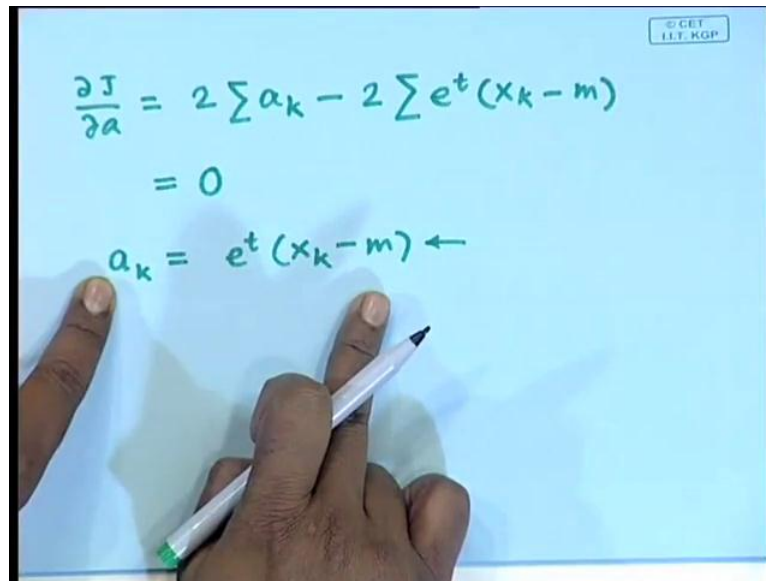 © CET
I.I.T. KGP
∂J/∂a = 2 ∑ aₖ − 2 ∑ eᵗ (xₖ − m)
= 0
aₖ = eᵗ (xₖ − m) ←